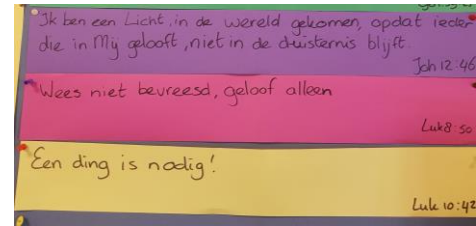 Ik ben een Licht, in de wereld gekomen, opdat ieder
die in Mij gelooft, niet in de duisternis blijft.
Joh 12:46
Wees niet bevreesd, geloof alleen
Luk 8:50
Een ding is nodig!
Luk 10:42